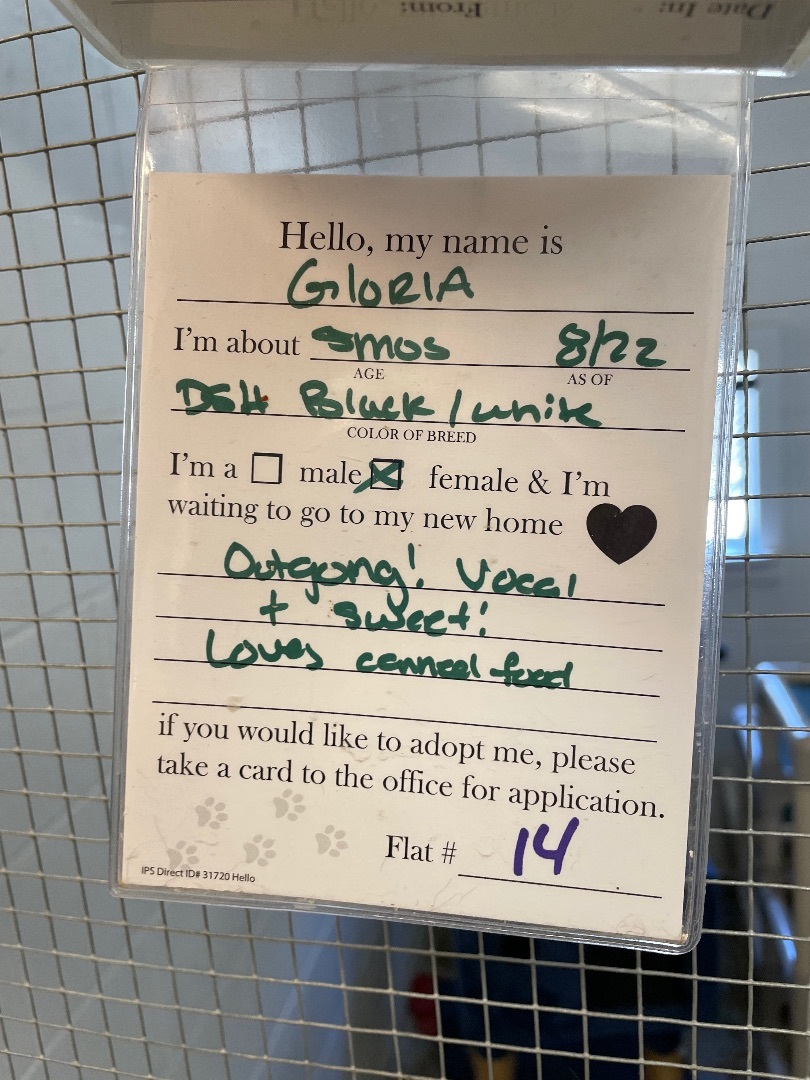 Date In:
From:
Hello, my name is
GlORIA
I'm about 5mos 8/22
AGE AS OF
DSH Black / white
COLOR OF BREED
I'm a male female & I'm
waiting to go to my new home
Outgoing! Vocal
+ sweet!
Loves canned food
if you would like to adopt me, please
take a card to the office for application.
Flat # 14
IPS Direct ID# 31720 Hello